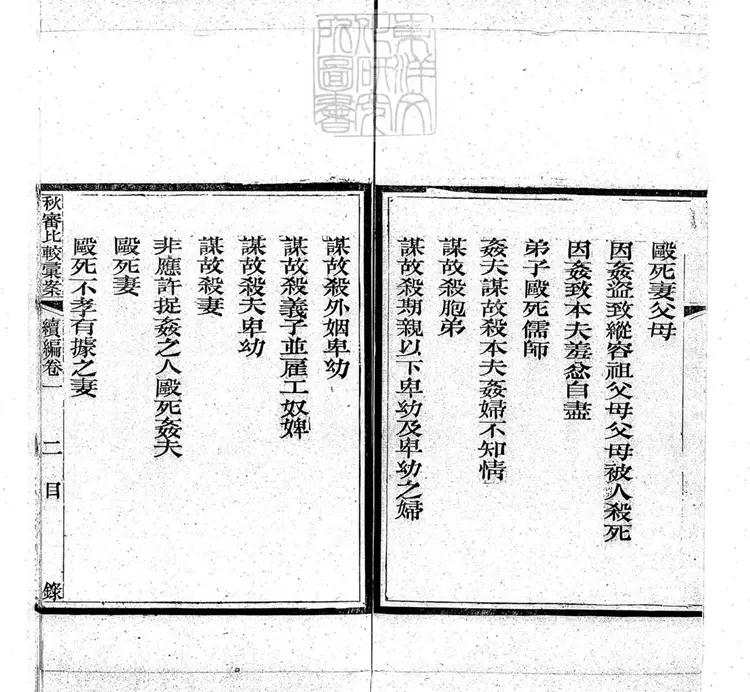 毆死妻父母
因姦盜致縱容祖父母父母被人殺死
因姦致本夫羞忿自盡
弟子毆死儒師
姦夫謀故殺本夫姦婦不知情
謀故殺胞弟
謀故殺期親以下卑幼及卑幼之婦
謀故殺外姻卑幼
謀故殺義子並雇工奴婢
謀故殺夫卑幼
謀故殺妻
非應許捉姦之人毆死姦夫
毆死妻
毆死不孝有據之妻
秋審比較彙案 續編卷一 二 目 錄
東洋文
化研究
所圖書